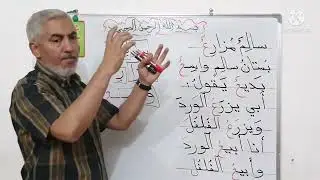 بسم الله الرحمن الرحيم
سالِمٌ مُزارِعٌ
بُستانُ سالِمٍ واسِعٌ
بَديعٌ يَقولُ:
أَبي يَزرَعُ الوَردَ
وَيَزرَعُ الفُلفُلَ
أَنا أَبيعُ الوَردَ
وَأَبيعُ الفُلفُلَ